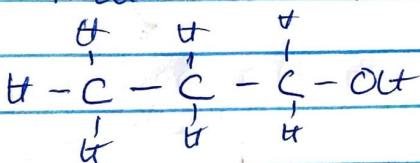 H H H
H - C - C - C - OH
H H H